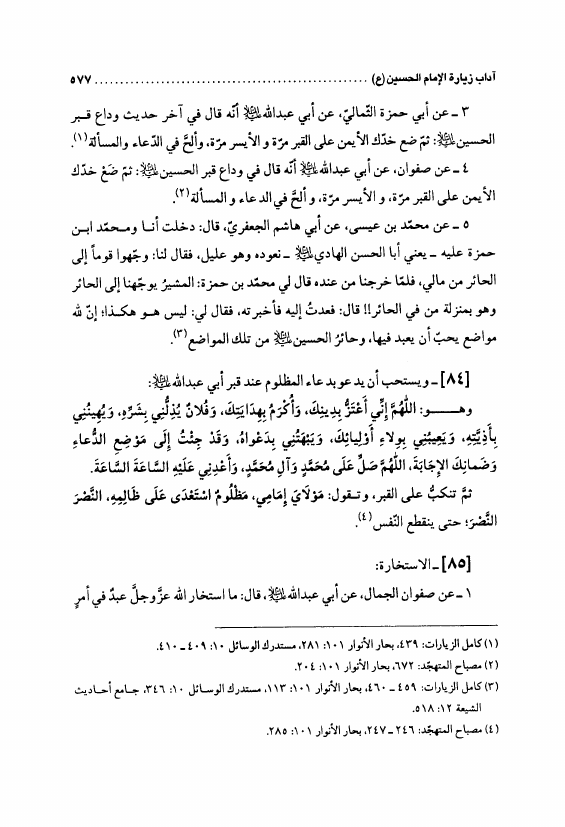 آداب زيارة الإمام الحسين (ع) ........................................................ ٥٧٧
٣ ـ عن أبي حمزة الثماليّ، عن أبي عبدالله ﷺ أنّه قال في آخر حديث وداع قبر
الحسين ﷺ: ثمّ ضع خدّك الأيمن على القبر مرّة و الأيسر مرّة، وألحّ في الدّعاء والمسألة(١).
٤ ـ عن صفوان، عن أبي عبدالله ﷺ أنّه قال في وداع قبر الحسين ﷺ: ثمّ ضَعْ خدّك
الأيمن على القبر مرّة، و الأيسر مرّة، و ألحّ في الدعاء و المسألة(٢).
٥ ـ عن محمّد بن عيسى، عن أبي هاشم الجعفريّ، قال: دخلت أنـا ومـحمّد ابـن
حمزة عليه ـ يعني أبا الحسن الهادي ﷺ ـ نعوده وهو عليل، فقال لنا: وجّهوا قوماً إلى
الحائر من مالي، فلمّا خرجنا من عنده قال لي محمّد بن حمزة: المشيرُ يوجّهنا إلى الحائر
وهو بمنزلة من في الحائر!! قال: فعدتُ إليه فأخبرته، فقال لي: ليس هـو هكـذا؛ إنّ لله
مواضع يحبّ أن يعبد فيها، وحائرُ الحسين ﷺ من تلك المواضع(٣).
[٨٤] ـ ويستحب أن يدعو بدعاء المظلوم عند قبر أبي عبدالله ﷺ:
وهـــو: اللهُمَّ إنّي أعْتَزُّ بِدِينِكَ، وأُكْرَمُ بِهِدَايَتِكَ، وَفُلانٌ يُذِلُّنِي بِشَرِّهِ، وَيُهِينُنِي
بِأَذِيَّتِهِ، وَيَعِيبُنِي بِوِلاءِ أَوْلِيائِكَ، وَيَبْهَتُنِي بِدَعْوَاهُ، وَقَدْ جِئْتُ إلَى مَوْضِعِ الدُّعاءِ
وَضَمانِكَ الإجَابَةَ، اللّهُمَّ صَلِّ عَلَى مُحَمَّدٍ وَآلِ مُحَمَّدٍ، وَأَعْدِنِي عَلَيْهِ السَّاعَةَ السَّاعَةَ.
ثمّ تنكبُّ على القبر، وتـقول: مَوْلَايَ إمَامِي، مَظْلُومٌ اسْتَعْدَى عَلَى ظَالِمِهِ، النَّصْرَ
النَّصْرَ؛ حتى ينقطع النّفس(٤).
[٨٥] ـ الاستخارة:
١ ـ عن صفوان الجمال، عن أبي عبدالله ﷺ، قال: ما استخار الله عزَّ وجلَّ عبدٌ في أمرٍ
(١) كامل الزيارات: ٤٣٩، بحار الأنوار ١٠١: ٢٨١، مستدرك الوسائل ١٠: ٤٠٩ ـ ٤١٠.
(٢) مصباح المتهجّد: ٦٧٢، بحار الأنوار ١٠١: ٢٠٤.
(٣) كامل الزيارات: ٤٥٩ ـ ٤٦٠، بحار الأنوار ١٠١: ١١٣، مستدرك الوسـائل ١٠: ٣٤٦، جـامع أحـاديث
الشيعة ١٢: ٥١٨.
(٤) مصباح المتهجّد: ٢٤٦ ـ ٢٤٧، بحار الأنوار ١٠١: ٢٨٥.